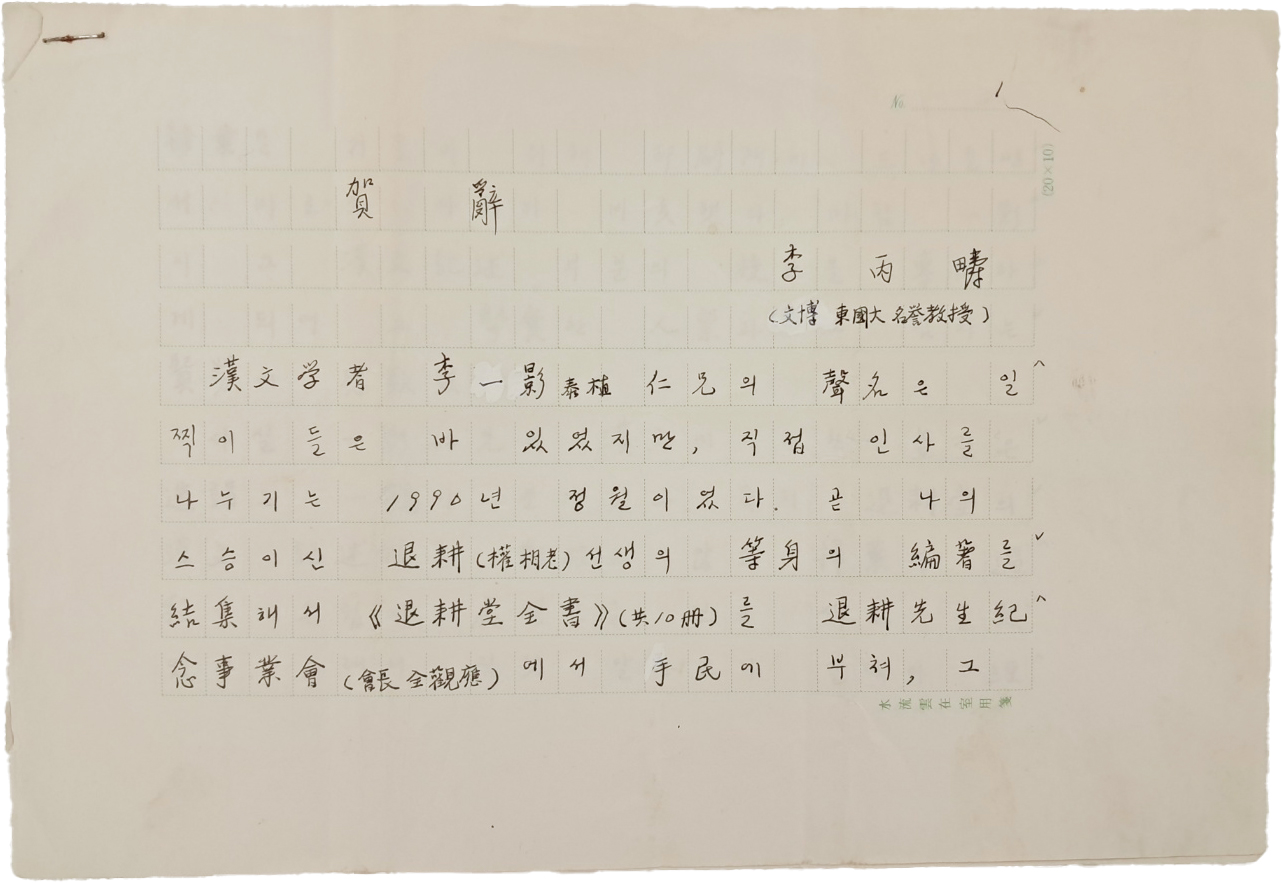 No. 1
(20×10)
賀 辭
李 丙 疇
(文博 東國大 名誉教授)
漢文学者 李一影泰植 仁兄의 聲名은 일
찍이 들은 바 있었지만, 직접 인사를
나누기는 1990년 정월이었다. 곧 나의
스승이신 退耕(權相老)선생의 等身의 編著를
結集해서 《退耕堂全書》(共10册)를 退耕先生紀
念事業會(會長 全觀應)에서 手民에 부쳐, 그
水流雲在室用箋